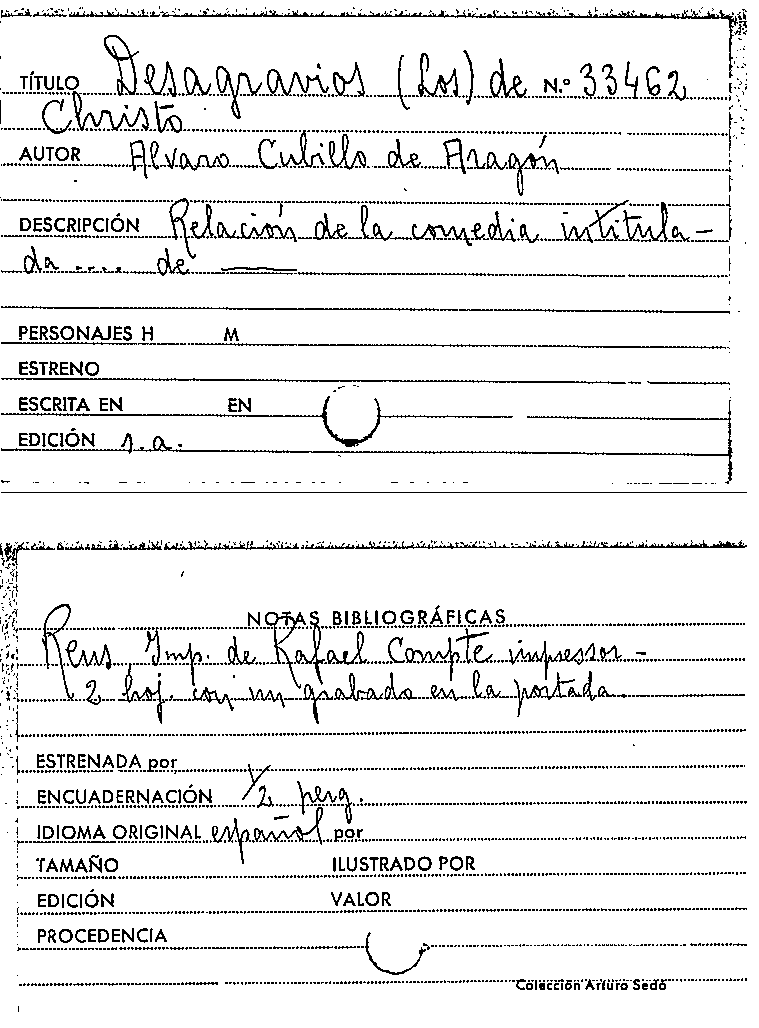 TÍTULO Desagravios (Los) de N.º 33462
Christo
AUTOR Alvaro Cubillo de Aragón
DESCRIPCIÓN Relación de la comedia intitula-
da .... de ——
PERSONAJES H M
ESTRENO
ESCRITA EN EN
EDICIÓN s.a.
NOTAS BIBLIOGRÁFICAS
Reus, Imp. de Rafael Compte impressor -
2 hoj. con un grabado en la portada.
ESTRENADA por
ENCUADERNACIÓN 1/2 perg.
IDIOMA ORIGINAL español por
TAMAÑO ILUSTRADO POR
EDICIÓN VALOR
PROCEDENCIA
Colección Arturo Sedó